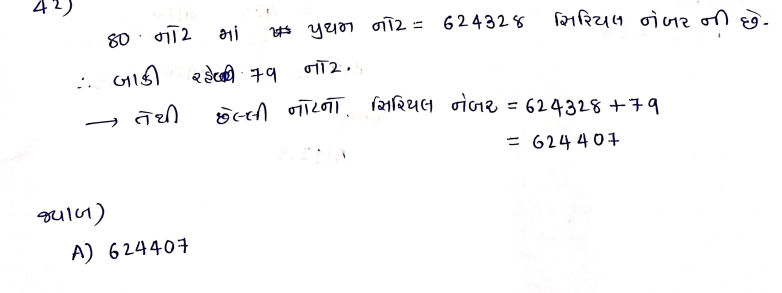 42)
80 નોટ માં પ્રથમ નોટ = 624328 સિરિયલ નંબર ની છે.
∴ બાકી રહેલી 79 નોટ.
→ તેથી છેલ્લી નોટનો સિરિયલ નંબર = 624328 + 79
= 624407
જવાબ)
A) 624407